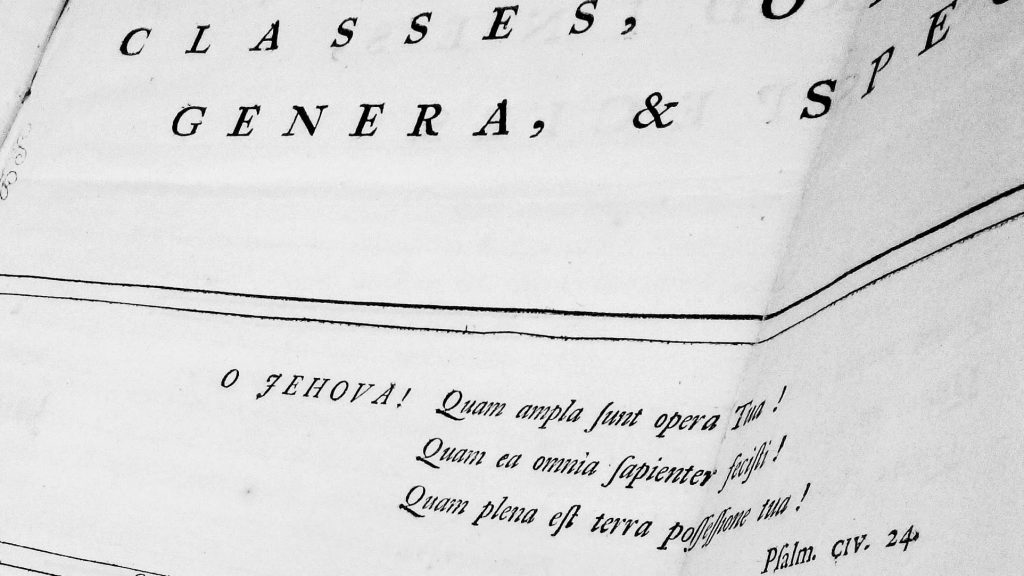 CLASSES, O
GENERA, & SPE
O JEHOVA! Quam ampla ſunt opera Tua!
Quam ea omnia ſapienter feciſti!
Quam plena eſt terra poſſeſſione tua!
Pſalm. CIV. 24.